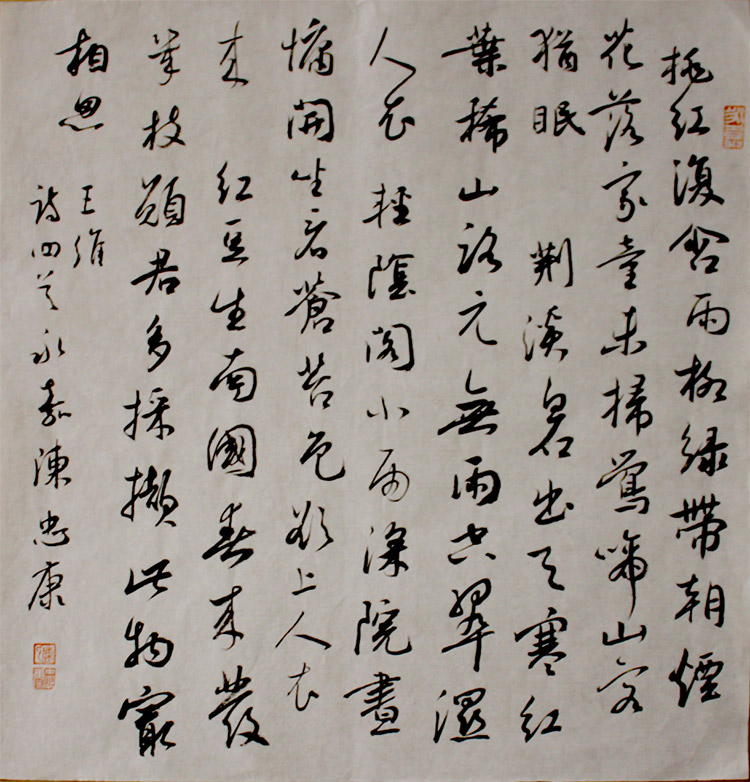 桃红復含雨柳绿帶朝煙
花落家童未掃鶯啼山客
猶眠 荆溪白石出天寒红
葉稀山路元無雨空翠濕
人衣 輕陰閣小雨深院晝
慵開坐看蒼苔色欲上人衣
来 红豆生南國春来發
幾枝願君多採擷此物最
相思 王維
詩四首永嘉陳忠康